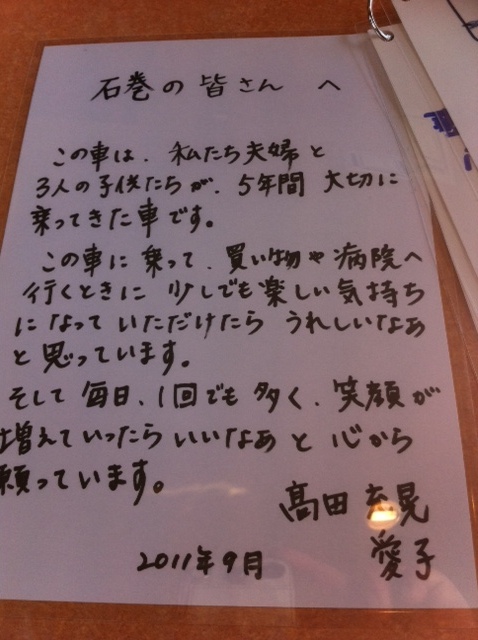 石巻の皆さん へ
この車は、私たち夫婦と
3人の子供たちが、5年間 大切に
乗ってきた車です。
この車に乗って、買い物や病院へ
行くときに 少しでも楽しい気持ち
になっていただけたら うれしいなあ
と思っています。
そして 毎日、1回でも多く、笑顔が
増えていったらいいなあと心から
願っています。
髙田 晃
愛子
2011年9月